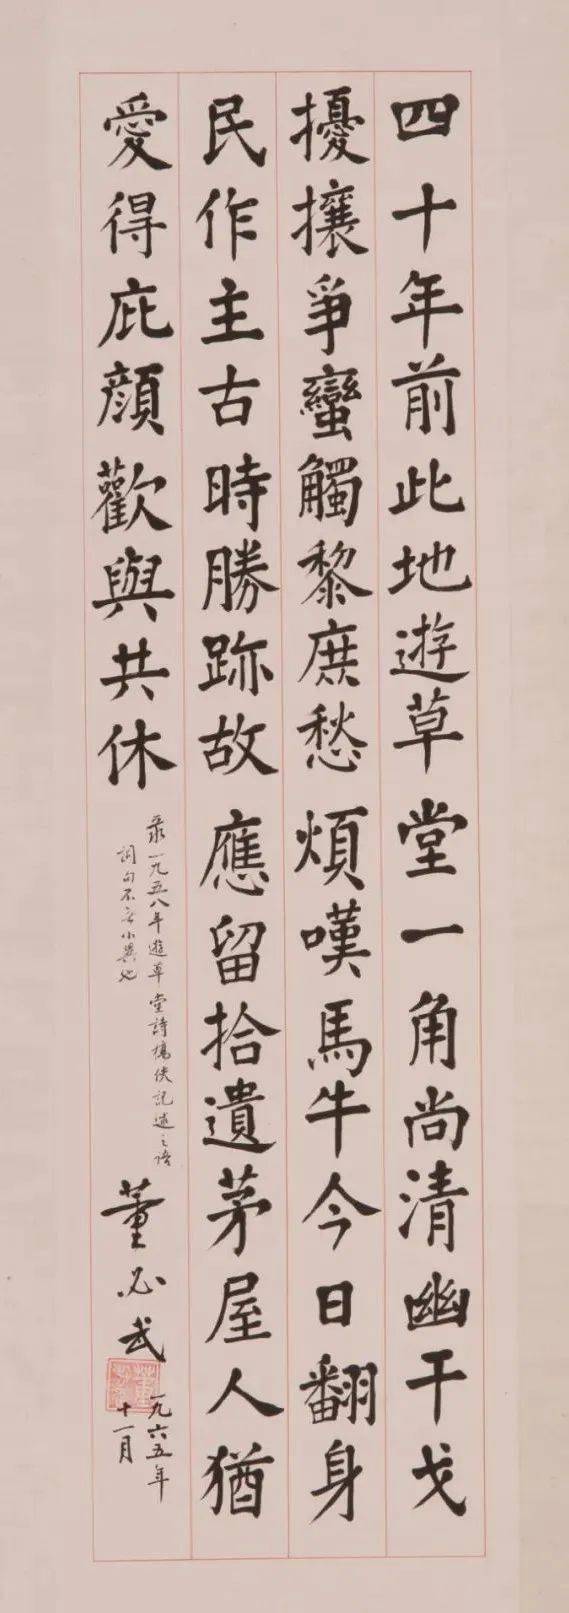 四十年前此地遊草堂一角尚清幽干戈
擾攘爭蠻觸黎庶愁煩嘆馬牛今日翻身
民作主古時勝跡故應留拾遺茅屋人猶
愛得庇顏歡與共休
录一九五八年遊草堂詩稿佚記述之
詞句不无小異也
董必武
一九六五年
十一月